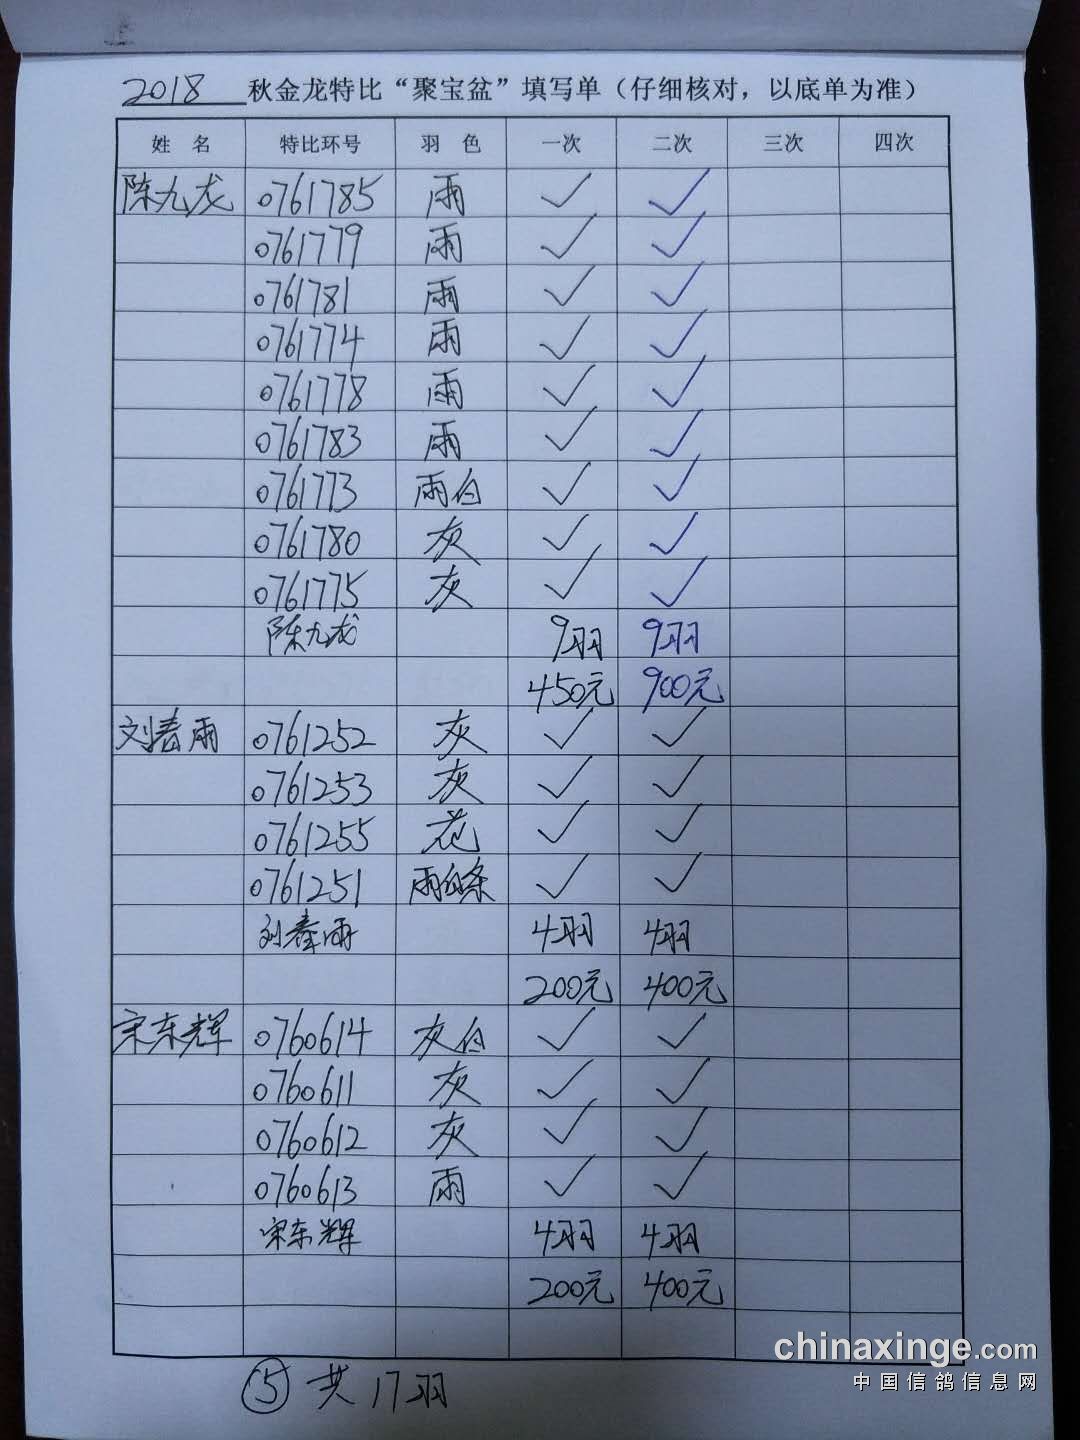 2018 秋金龙特比“聚宝盆”填写单（仔细核对，以底单为准）
姓 名 特比环号 羽 色 一次 二次 三次 四次
陈九龙 0761785 雨 ✓ ✓
0761779 雨 ✓ ✓
0761781 雨 ✓ ✓
0761774 雨 ✓ ✓
0761778 雨 ✓ ✓
0761783 雨 ✓ ✓
0761773 雨白 ✓ ✓
0761780 灰 ✓ ✓
0761775 灰 ✓ ✓
陈九龙 9羽 9羽
450元 900元
刘春雨 0761252 灰 ✓ ✓
0761253 灰 ✓ ✓
0761255 花 ✓ ✓
0761251 雨白条 ✓ ✓
刘春雨 4羽 4羽
200元 400元
宋东辉 0760614 灰白 ✓ ✓
0760611 灰 ✓ ✓
0760612 灰 ✓ ✓
0760613 雨 ✓ ✓
宋东辉 4羽 4羽
200元 400元
⑤ 共17羽
chinaxinge.com
中国信鸽信息网